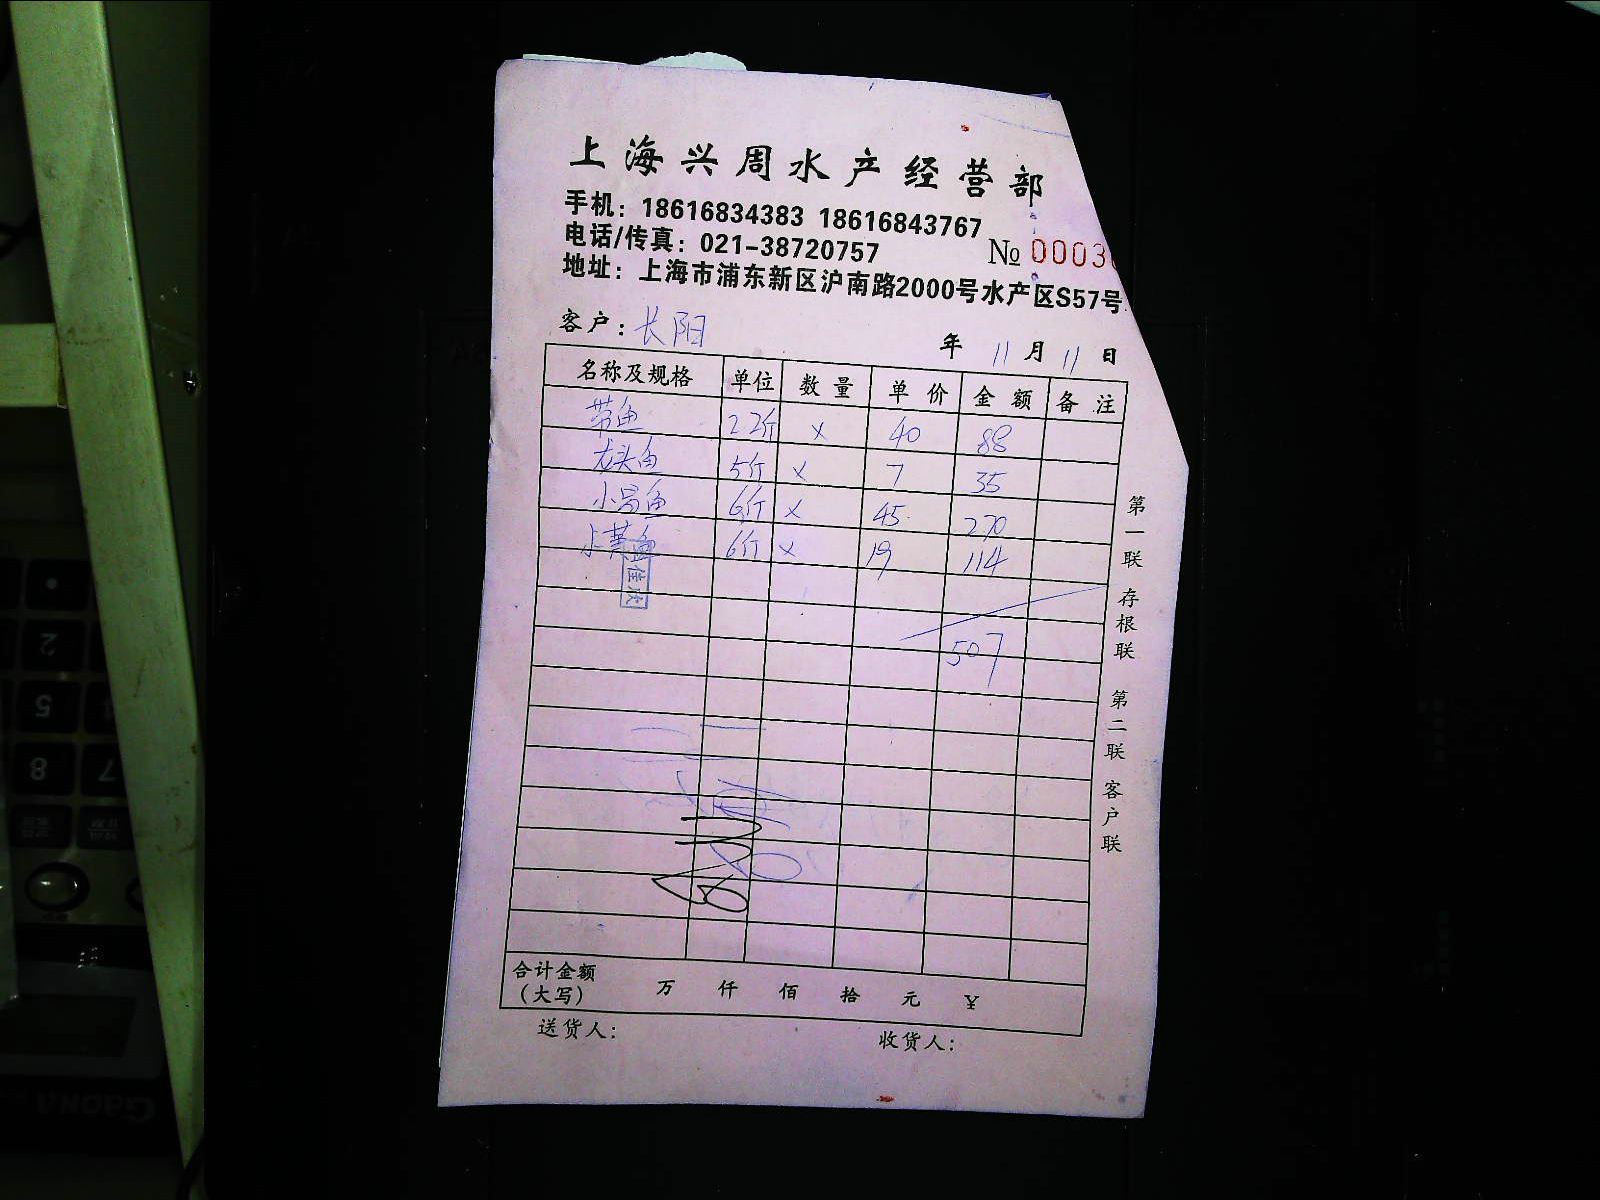 上海兴周水产经营部
手机：18616834383 18616843767
电话/传真：021-38720757
№ 0003
地址：上海市浦东新区沪南路2000号水产区S57号
客户：长阳
年 11月 11日
名称及规格 单位 数量 单价 金额 备注
带鱼 2.2斤 x 40 88
龙头鱼 5斤 x 7 35
小昌鱼 6斤 x 45 270
小黄鱼 6斤 x 19 114
507
第一联 存根联 第二联 客户联
合计金额（大写） 万 仟 佰 拾 元 ￥
送货人： 收货人：
2
5
8
7